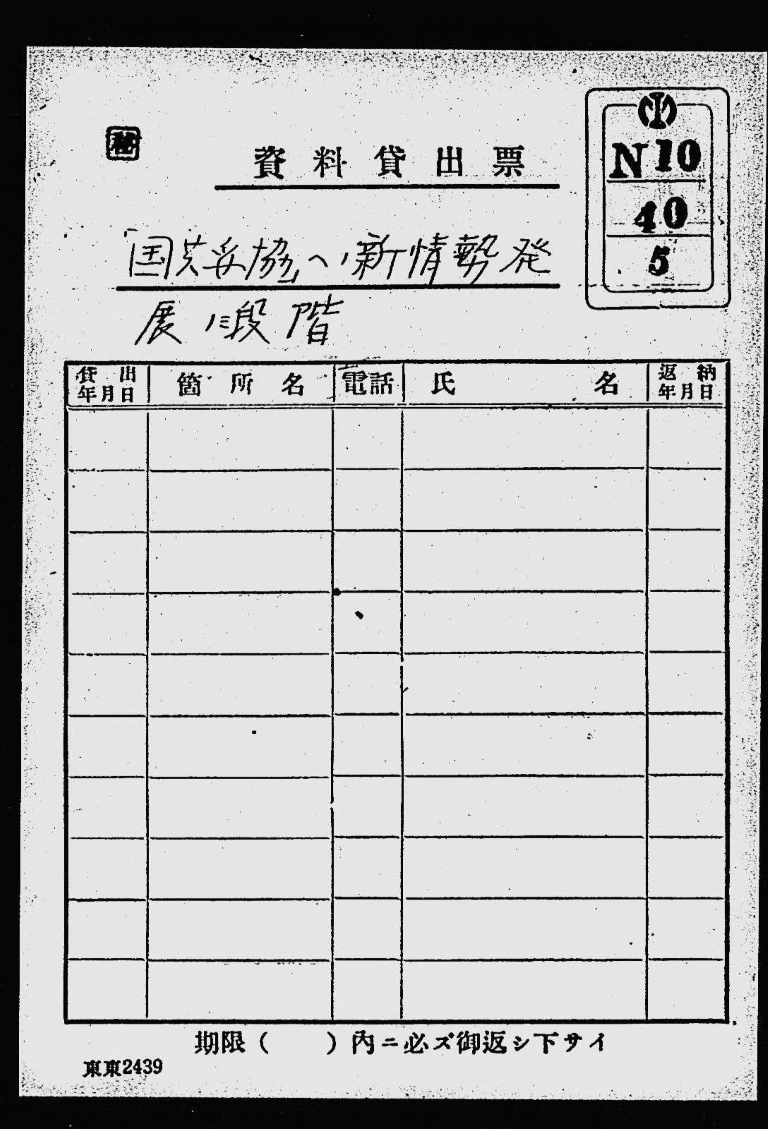 秘
資料貸出票
N10
40
5
「国共妥協」ヘノ新情勢発
展ノ段階
貸出年月日 箇所名 電話 氏名 返納年月日
期限（　　）内ニ必ズ御返シ下サイ
東東2439